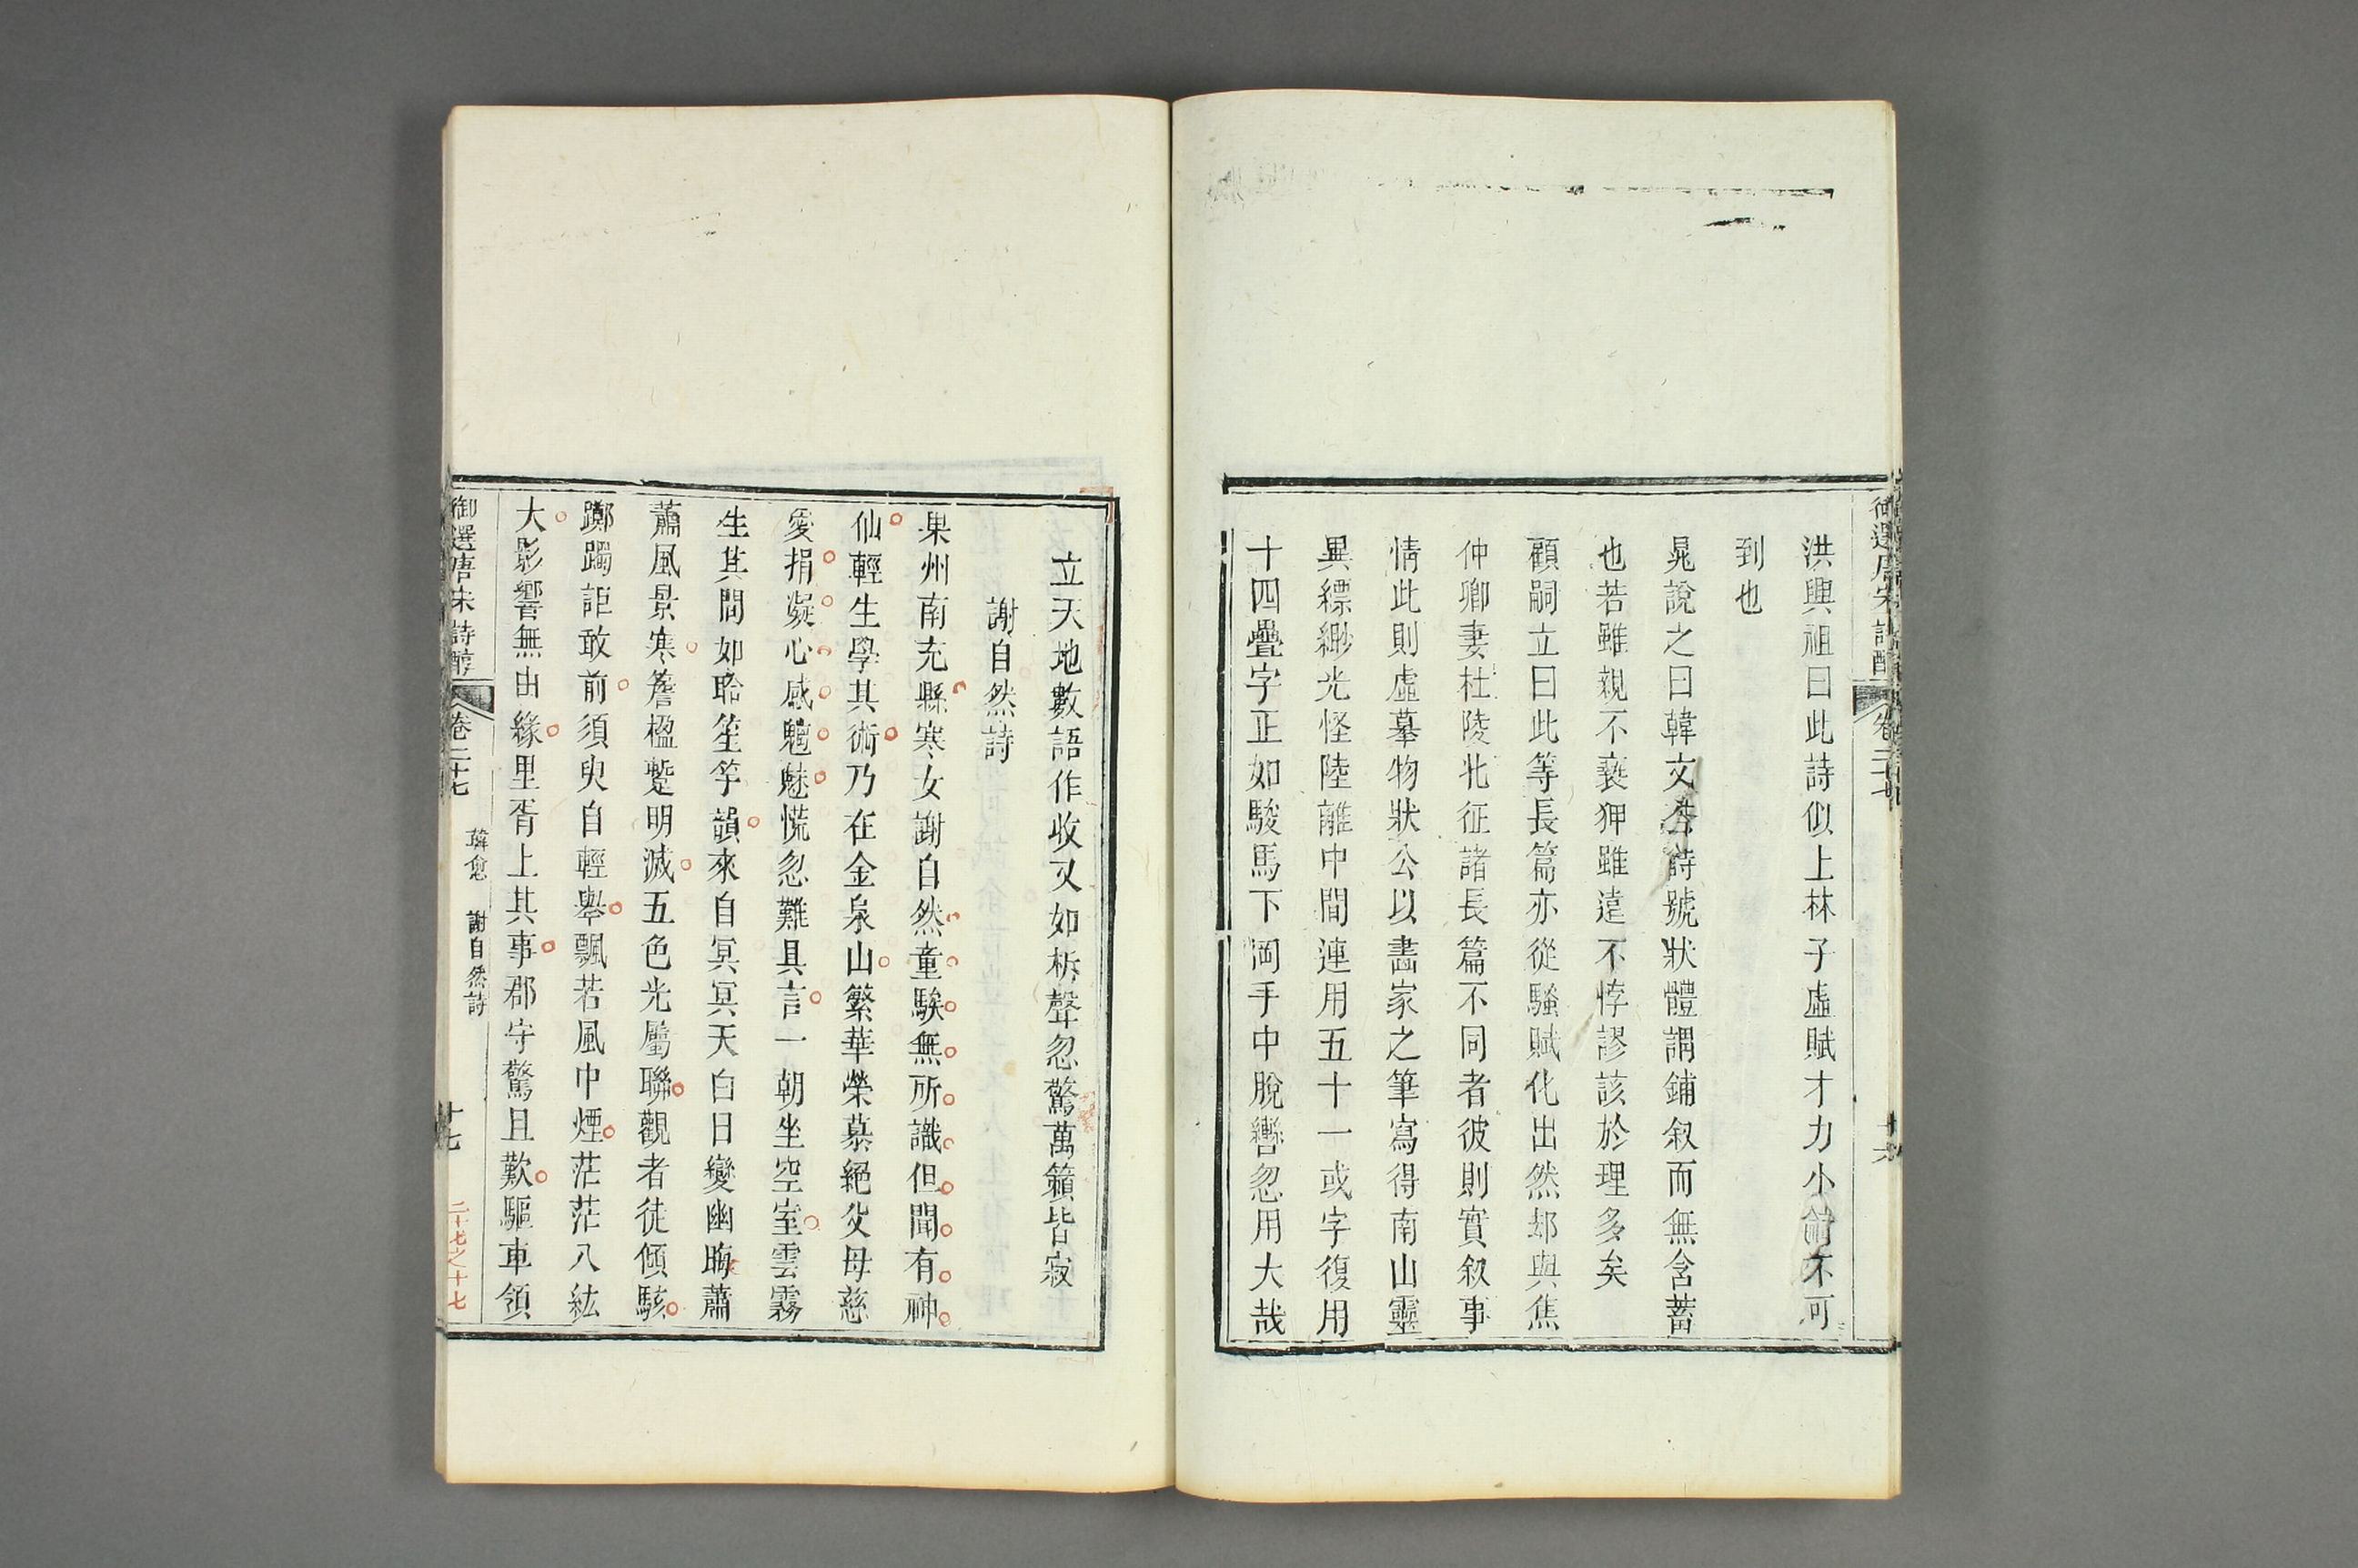 御選唐宋詩醇
卷二十七
十六
洪興祖曰此詩似上林子虛賦才力小者不可
到也
晁說之曰韓文公詩號狀體謂鋪叙而無含蓄
也若雖親不䙝狎雖遠不悖謬該於理多矣
顧嗣立曰此等長篇亦從騷賦化出然却與焦
仲卿妻杜陵北征諸長篇不同者彼則實叙事
情此則虛摹物狀公以畵家之筆寫得南山靈
異縹緲光怪陸離中間連用五十一或字復用
十四疊字正如駿馬下岡手中脫轡忽用大哉
立天地數語作收又如柝聲忽驚萬籟皆寂
謝自然詩
果州南充縣寒女謝自然童騃無所識但聞有神
仙輕生學其術乃在金泉山繁華榮慕絕父母慈
愛捐凝心感魑魅慌忽難具言一朝坐空室雲霧
生其間如聆笙竽韻來自冥冥天白日變幽晦蕭
蕭風景寒簷楹蹔明滅五色光屬聯觀者徒傾駭
躑躅詎敢前須臾自輕舉飄若風中煙茫茫八紘
大影響無由緣里胥上其事郡守驚且歎驅車領
御選唐宋詩醇
卷二十七
韓愈 謝自然詩
十七
二十七之十七